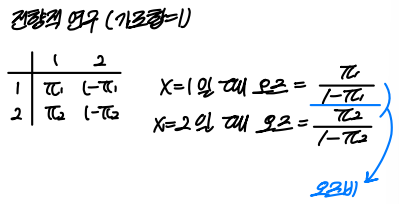 전향적 연구 (가로합=1)
1 2
1 π₁ 1-π₁
2 π₂ 1-π₂
X=1일 때 오즈 = π₁/1-π₁
X=2일 때 오즈 = π₂/1-π₂
오즈비